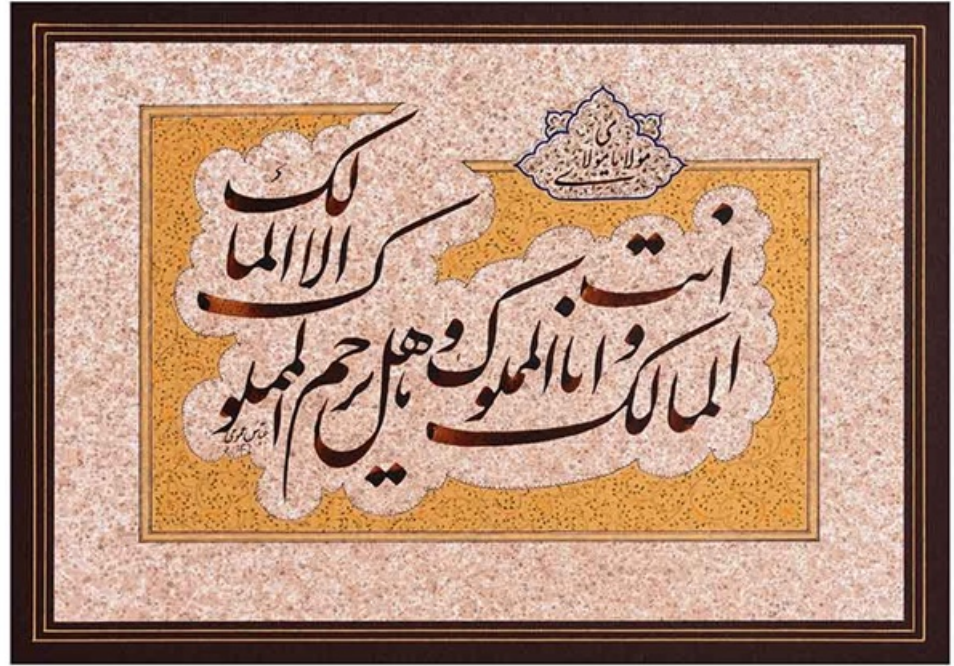 مولای یا مولای
انت
المالک و انا المملوک و هل یرحم المملوک
الا المالک